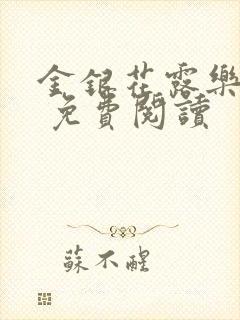 金銀花露樂
免費閱讀
蘇不醒